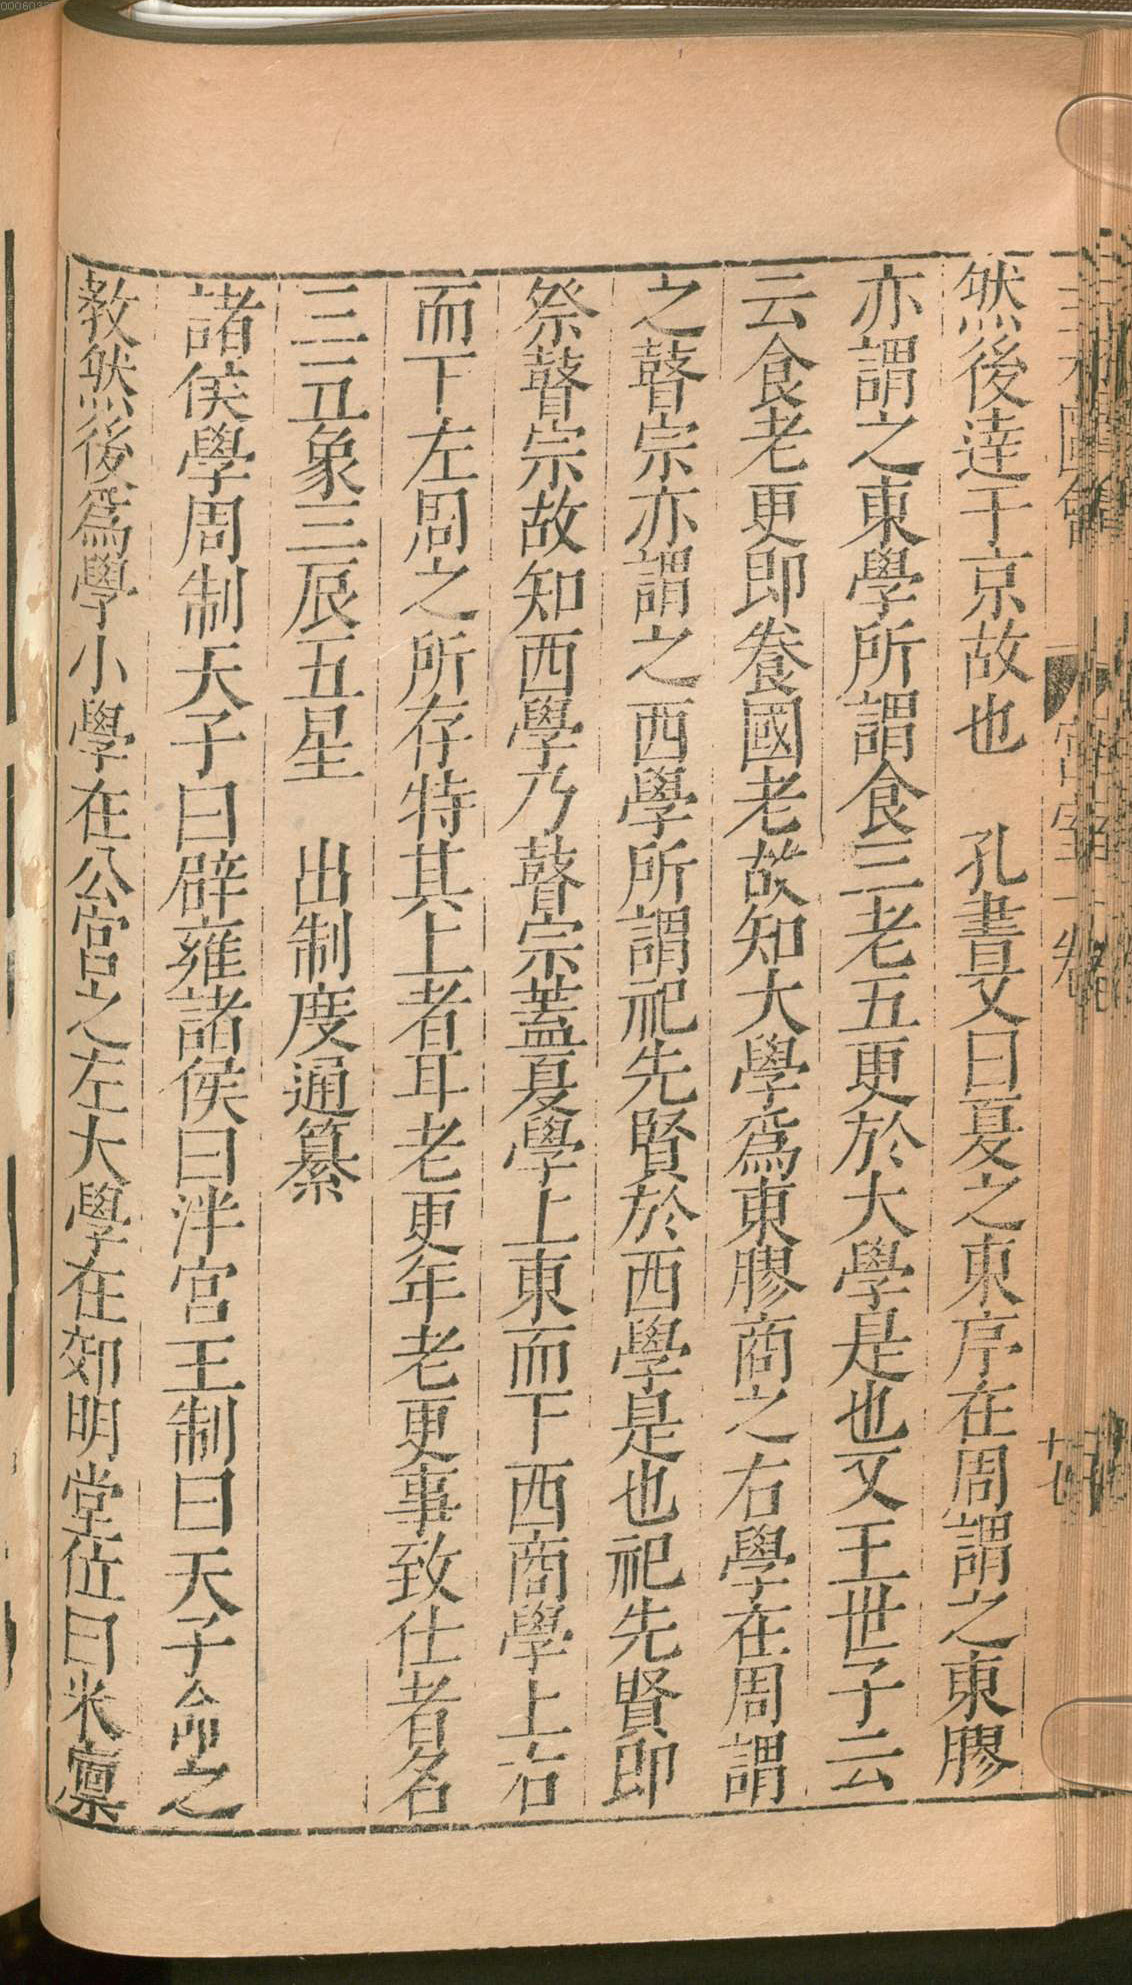 然後達于京故也　孔晝又曰夏之東序在周謂之東膠
亦謂之東學所謂食三老五更於大學是也文王世子云
云食老更即養國老故知大學爲東膠商之右學在周謂
之瞽宗亦謂之西學所謂祀先賢於西學是也祀先賢即
祭瞽宗故知西學乃瞽宗蓋夏學上東而下西商學上右
而下左周之所存特其上者耳老更年老更事致仕者名
三三五象三辰五星　出制度通纂
諸侯學周制天子曰辟雍諸侯曰泮宮王制曰天子命之
教然後爲學小學在公宮之左大學在郊明堂位曰米廩